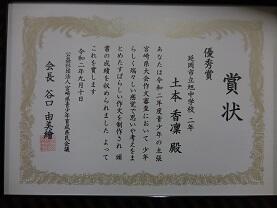 賞状
優秀賞
延岡市立旭中学校 二年
土本 香凜 殿
あなたは令和二年度青少年の主張
宮崎県大会作文審査において 少年
らしく瑞々しい感覚で思いや考えをま
とめたすばらしい作文を制作され 頭
書の成績を収められました よって
これを賞します
令和二年九月十日
公益社団法人宮崎県青少年育成県民会議
会長 谷口 由美繪